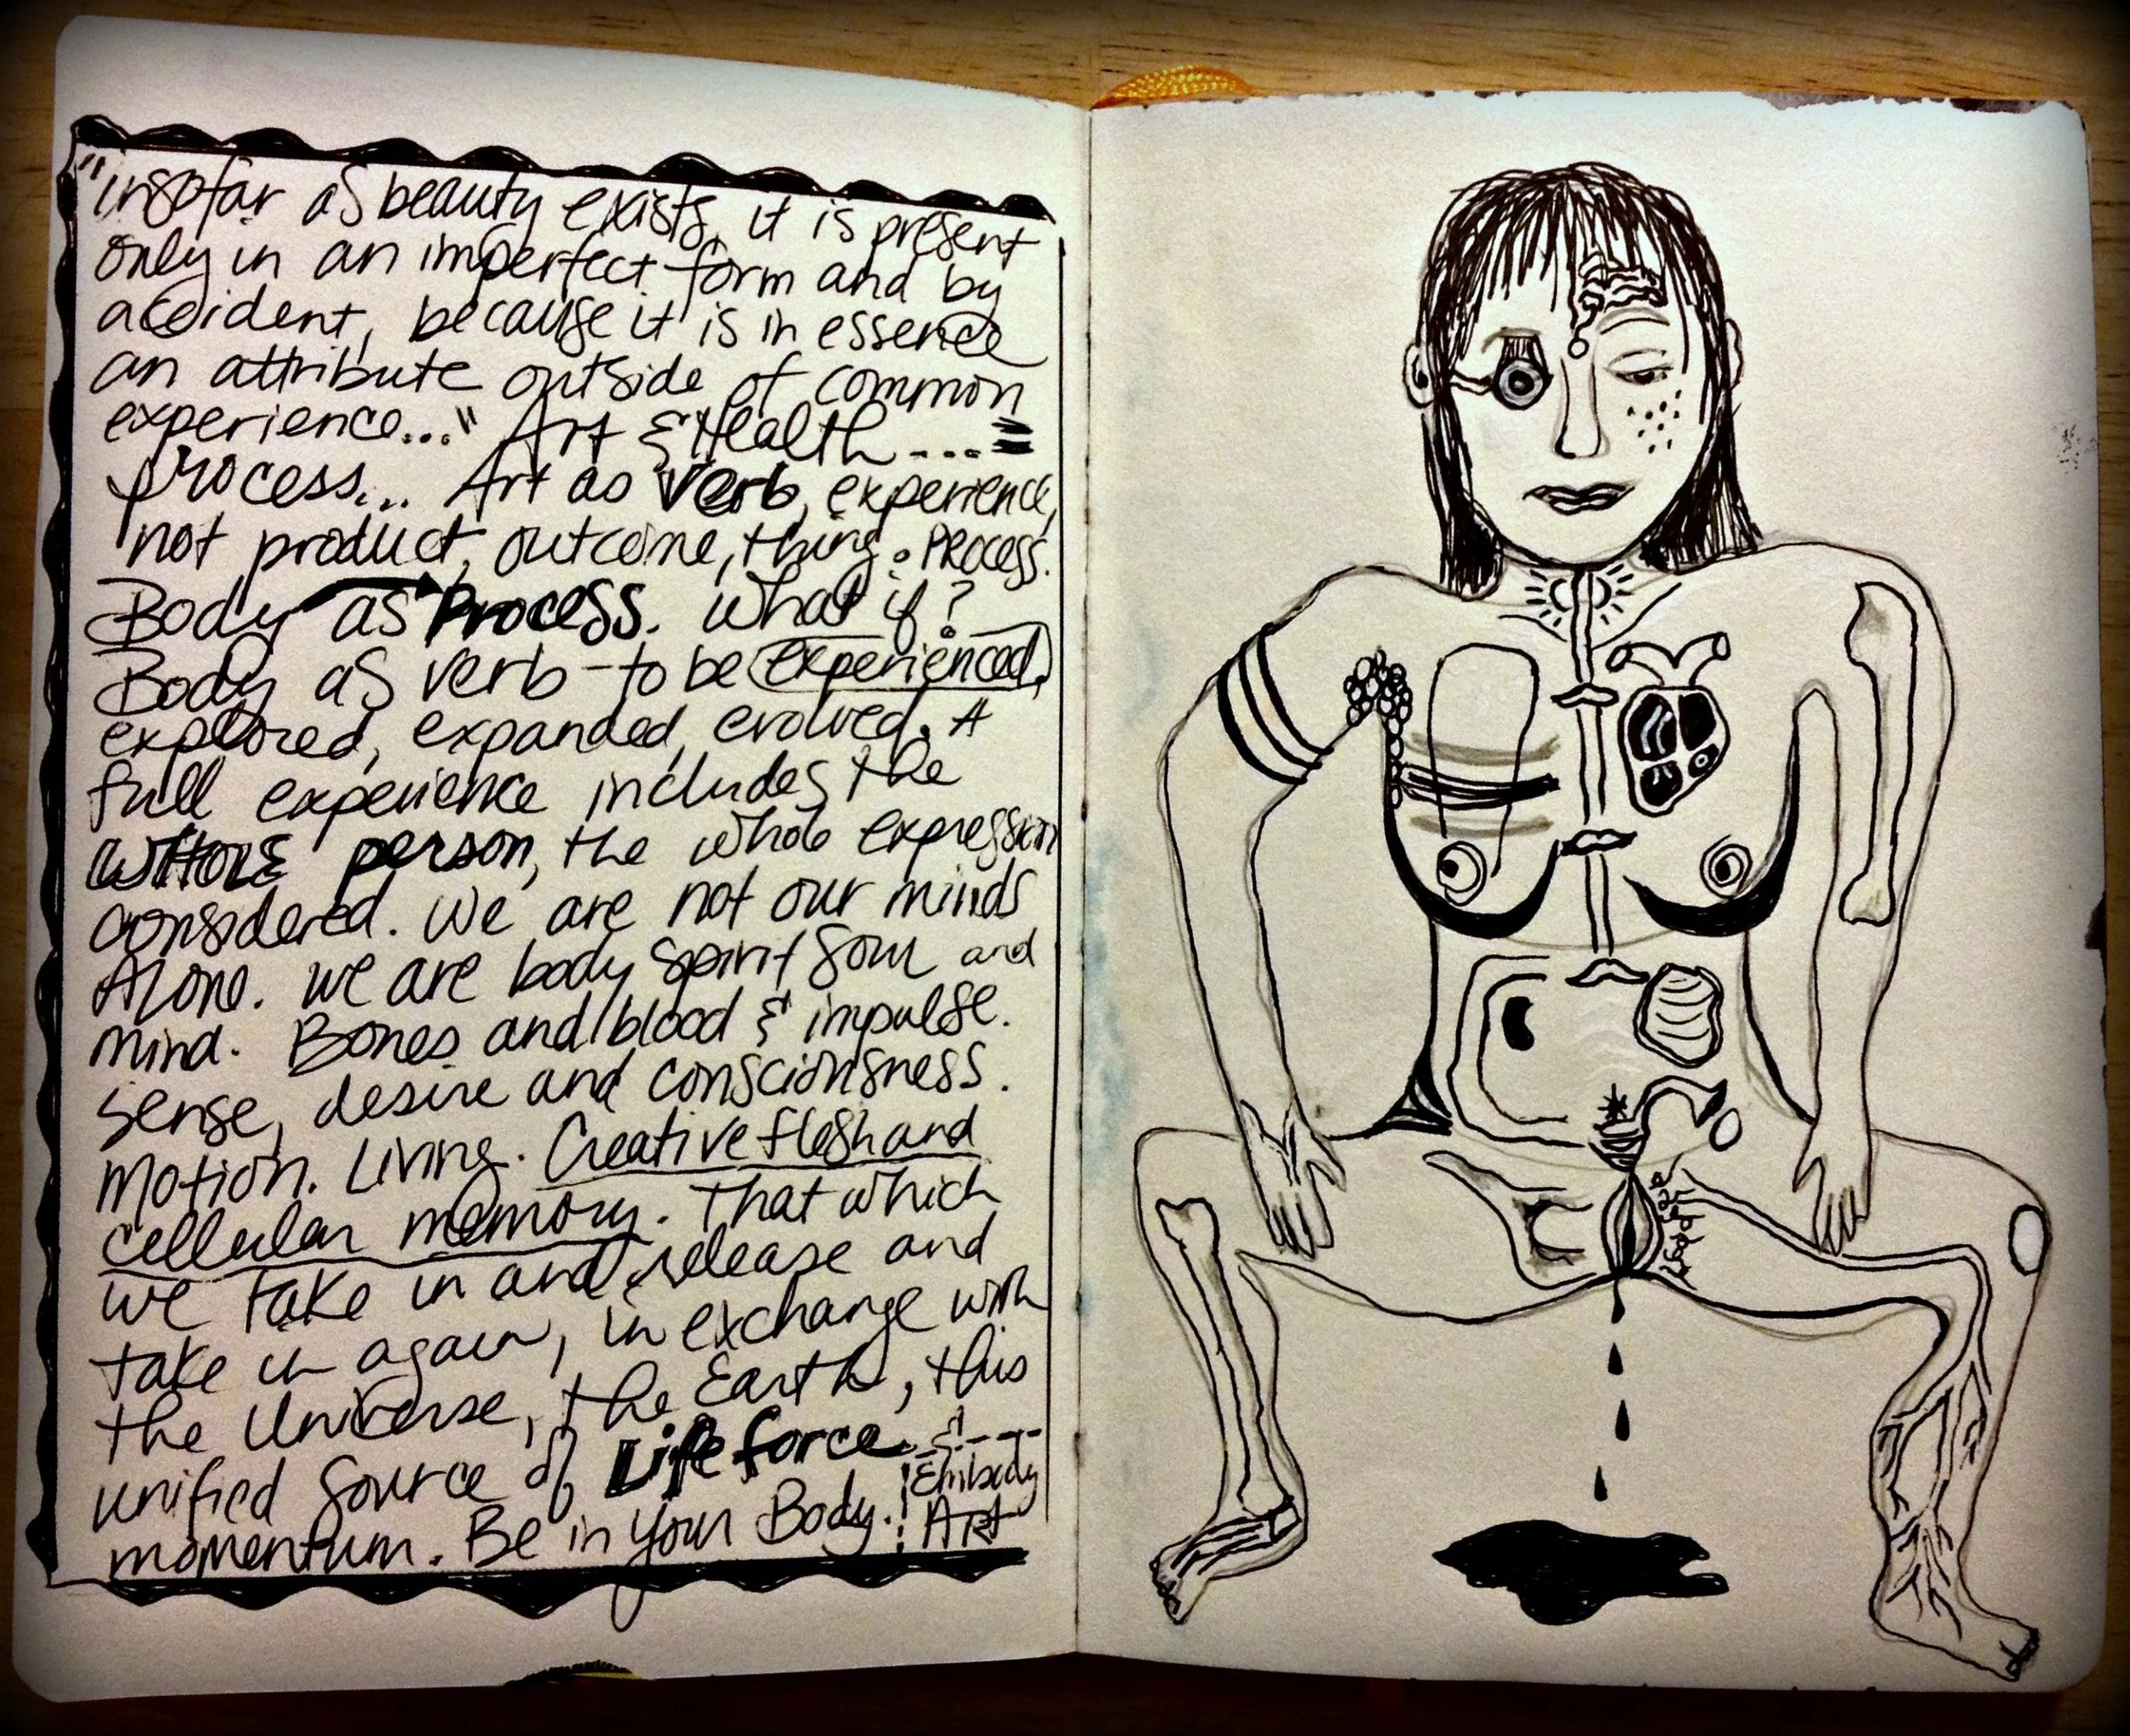 "insofar as beauty exists, it is present
only in an imperfect form and by
accident, because it is in essence
an attribute outside of common
experience..." Art & Health.... =
process... Art as verb, experience,
not product, outcome, thing. PROCESS.
Body as Process. What if?
Body as verb - to be experienced,
explored, expanded, evolved. A
full experience includes the
WHOLE person, the whole expression
considered. We are not our minds
Alone. We are body spirit soul and
mind. Bones and blood & impulse.
Sense, desire and consciousness.
Motion. Living. Creative flesh and
cellular memory. That which
we take in and release and
take in again, in exchange with
the Universe, the Earth, this
unified source of Life force
momentum. Be in your Body.
Embody
Art